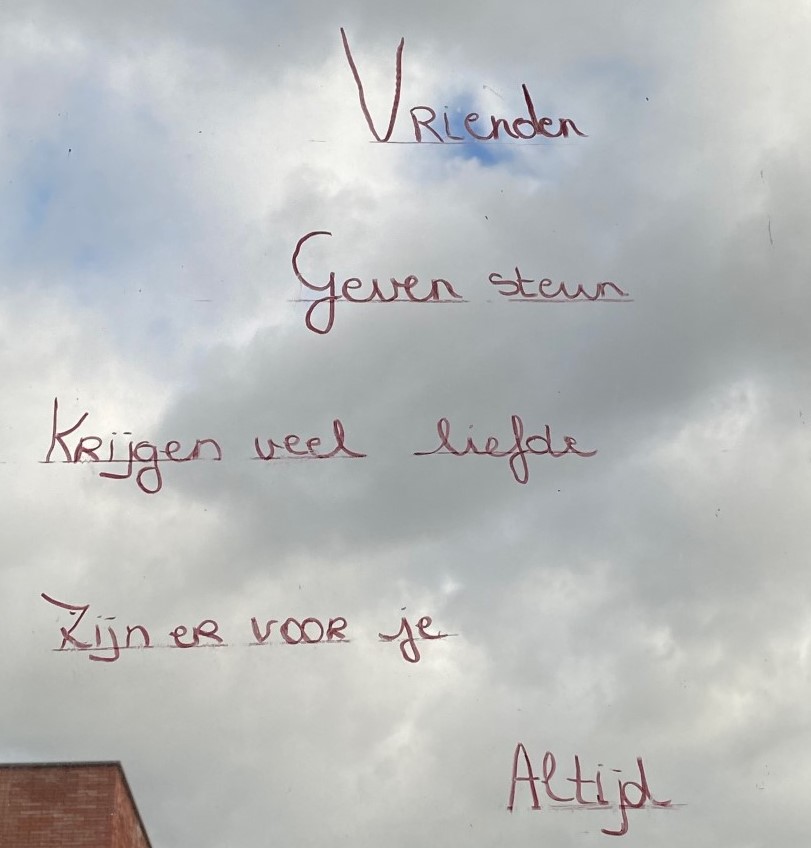 Vrienden
Geven steun
Krijgen veel liefde
Zijn er voor je
Altijd